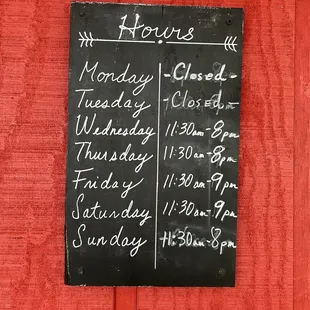 Hours
Monday - Closed -
Tuesday - Closed -
Wednesday 11:30am-8pm
Thursday 11:30am-8pm
Friday 11:30am-9pm
Saturday 11:30am-9pm
Sunday 11:30am-8pm